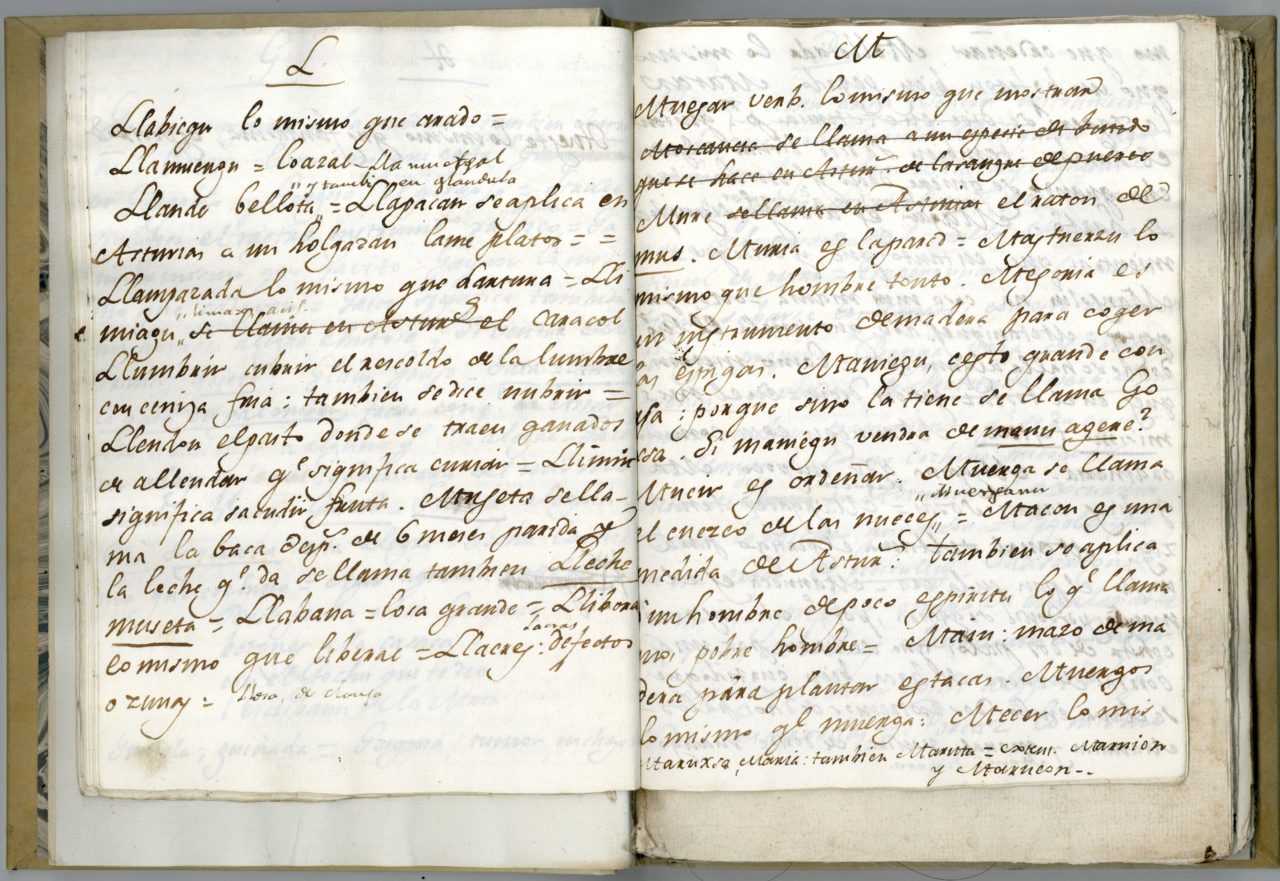 L
Llabiegu lo mismo que arado =
Llamuergu = loazal
"y tambi en glandula
Llande bellota „ = Llapacan se aplica en
Asturias a un holgazan lame platos = =
Llamparada lo mismo que hartura = Lli
miagu „ se llama en Astur.s el caracol
Llumbrir cubrir el rescoldo de la lumbre
con ceniza fria : tambien se dice nubrir =
Llendon el puto donde se traen ganados
de allendar q.e significa curiar = Llimir
significa sacudir fruta . Museta se lla-
ma la baca desp.s de 6 meses parida y
la leche q.e da se llama tambien Lleche
museta = Llabana = losa grande = Llibona
lacras
lo mismo que liberal = Llacres : defectos
o zunas =
M
Muesar verb. lo mismo que mostrar
se llama a un especie de
que se hace en Astur.s de la sangre de puerco
Mure se llama en Asturias el raton de
mus . Muria es la pared = Mastuerzu lo
mismo que hombre tonto . Mesoria es
un instrumento de madera para coger
las espigas . Maniezu, cesto grande con
asa ; porque sino la tiene se llama Go
xsa . Si maniegu vendra de manu agere?
Mucir es ordeñar . Muerga se llama
el cuezco de las nueces „ = Macon es una
medida de Astur.s tambien se aplica
a un hombre de poco espiritu lo q.e llama
mos pobre hombre = Main : mazo de ma
dera para plantar estacas . Muergos
lo mismo q.e muerga : Mecer lo mis
Maruxsa, Maria : tambien Maritta = exten. Marnion
y Marucon -.